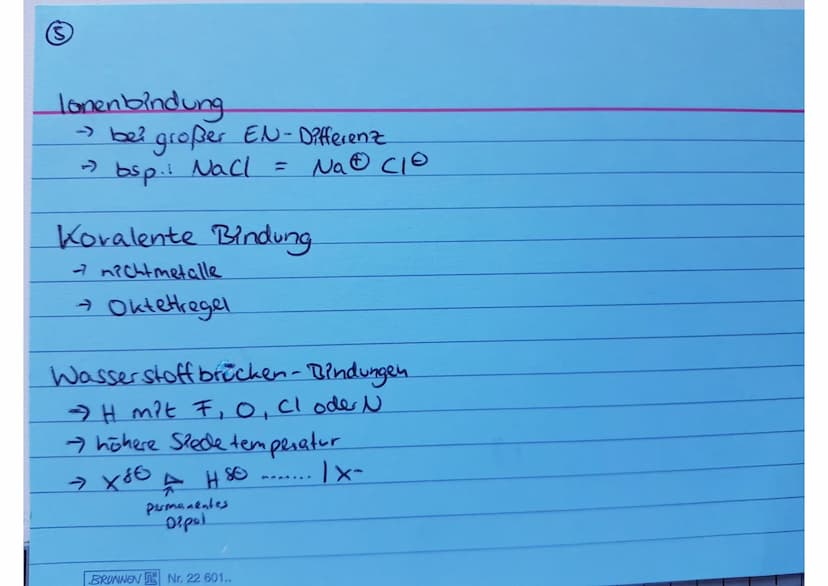 5
Ionenbindung
→ bei großer EN-Differenz
→ bsp.: NaCl = Na⊕ Cl⊖
Kovalente Bindung
→ nichtmetalle
→ Oktettregel
Wasserstoffbrücken-Bindungen
→ H mit F, O, Cl oder N
→ höhere Siedetemperatur
→ X δ⊖ H δ⊕ ....... |X-
permanentes
Dipol
BRUNNEN Nr. 22 601..